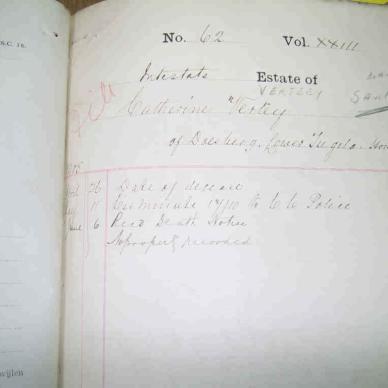 S.C. 18.
No. 62 Vol. XXIII
Intestate Estate of
VERTEY
Catherine Vertey
of Doesberg, Lower Tugela.
26 Date of decease
Minute 17/10 to C C Police
June 6 Recd Death Notice
No property recorded
wijlen